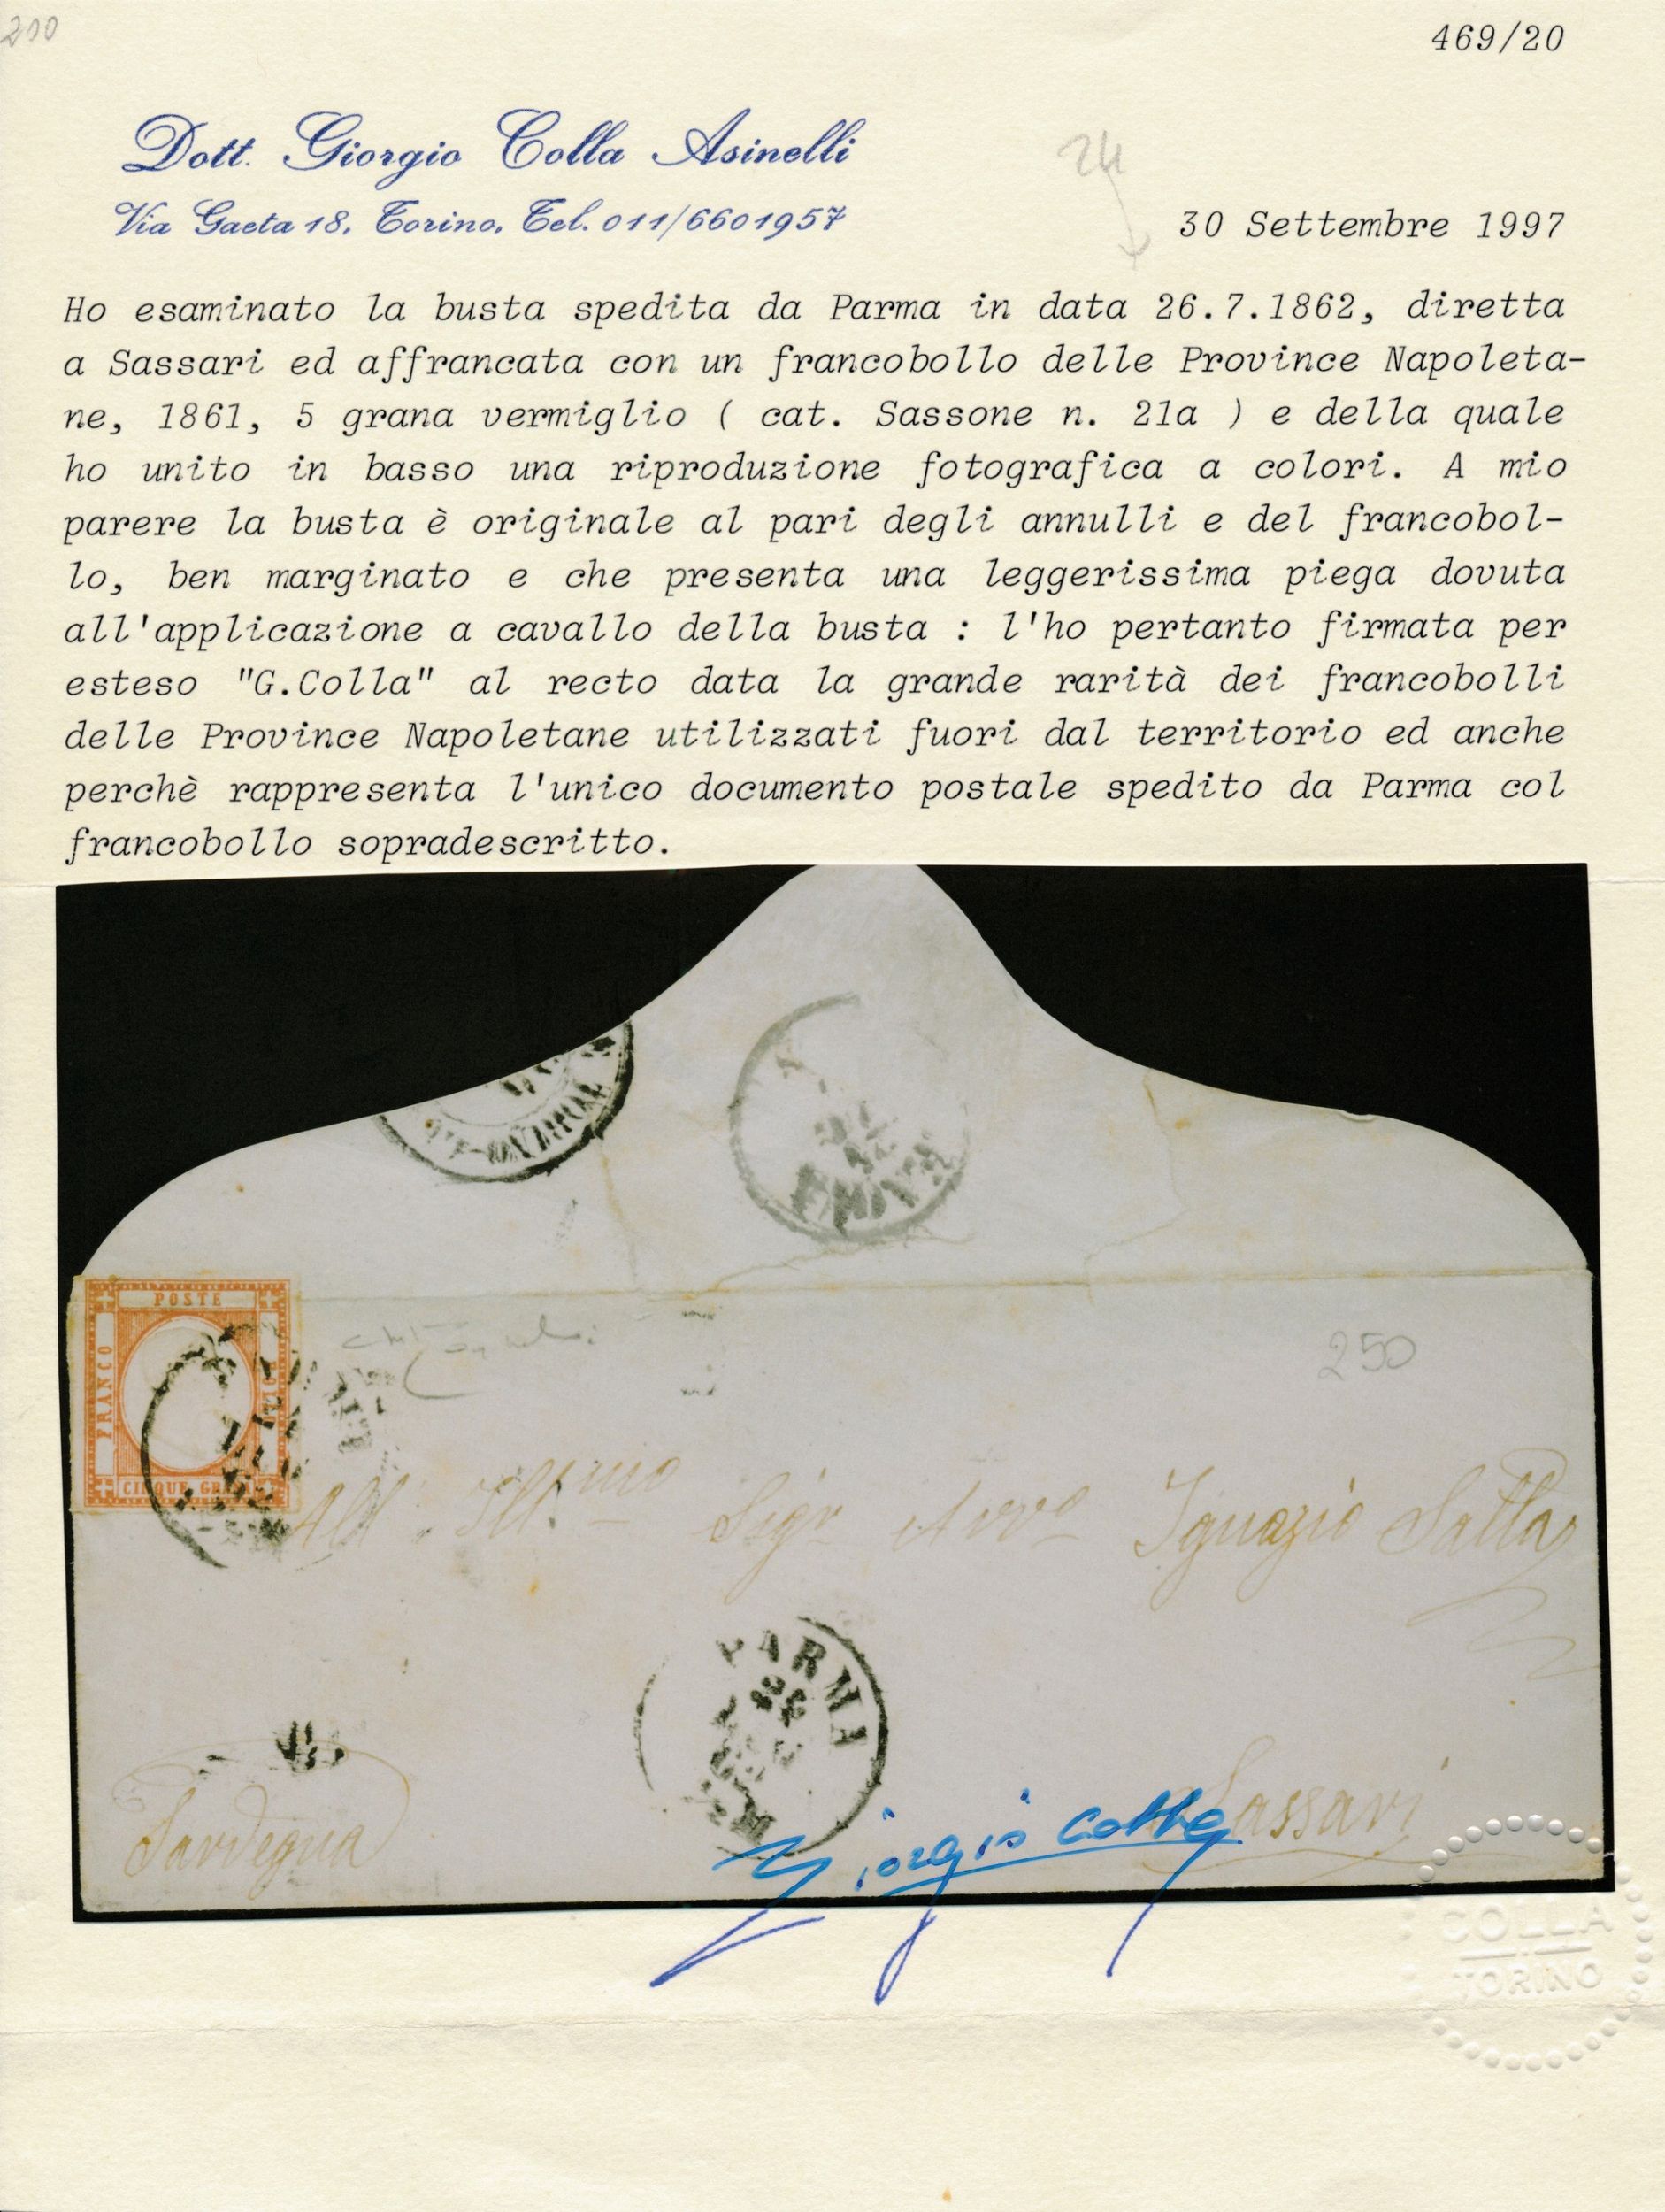 200
469/20
Dott. Giorgio Colla Asinelli
Via Gaeta 18, Torino, Tel. 011/6601957
24
30 Settembre 1997
Ho esaminato la busta spedita da Parma in data 26.7.1862, diretta
a Sassari ed affrancata con un francobollo delle Province Napoleta-
ne, 1861, 5 grana vermiglio ( cat. Sassone n. 21a ) e della quale
ho unito in basso una riproduzione fotografica a colori. A mio
parere la busta è originale al pari degli annulli e del francobol-
lo, ben marginato e che presenta una leggerissima piega dovuta
all'applicazione a cavallo della busta : l'ho pertanto firmata per
esteso "G.Colla" al recto data la grande rarità dei francobolli
delle Province Napoletane utilizzati fuori dal territorio ed anche
perchè rappresenta l'unico documento postale spedito da Parma col
francobollo sopradescritto.
POSTE
FRANCO
CINQUE GRANA
250
All' Ill.mo Sigr Avvo Ignazio Satta
PARMA
Sardegna
Sassari
Giorgio Colla
COLLA
TORINO